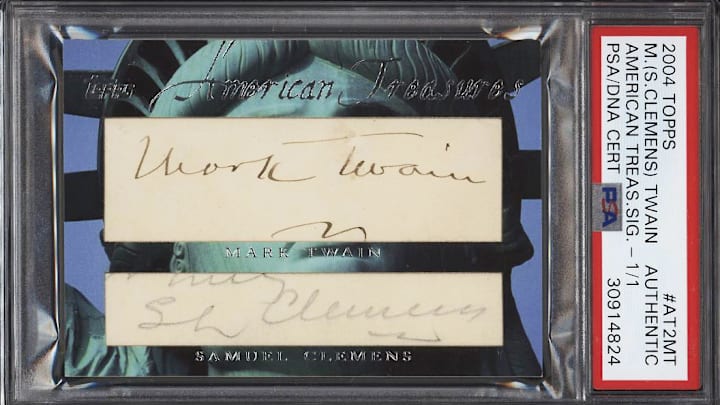 Topps American Treasures
Mark Twain
MARK TWAIN
S L Clemens
SAMUEL CLEMENS
2004 TOPPS #AT2MT
M.(S.CLEMENS) TWAIN AUTHENTIC
AMERICAN TREAS.SIG. – 1/1
PSA/DNA CERT 30914824
PSA